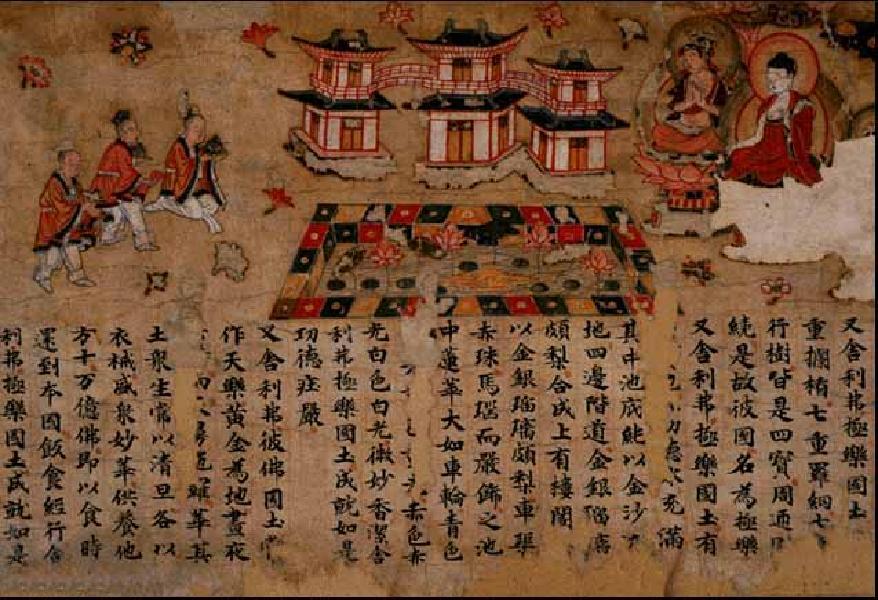 又舍利弗極樂國土
重欄楯七重羅網七
行樹皆是四寶周迊
繞是故彼國名為極樂
又舍利弗極樂國土有
功德水充滿
其中池底純以金沙
地四邊階道金銀瑠璃
頗梨合成上有樓閣
以金銀瑠璃頗梨車磲
赤珠馬瑙而嚴飾之池
中蓮華大如車輪青色
赤色赤
光白色白光微妙香潔舍
利弗極樂國土成就如是
功德莊嚴
又舍利弗彼佛國土常
作天樂黃金為地晝夜
而羅華其
土眾生常以清旦各以
衣裓盛眾妙華供養他
方十万億佛即以食時
還到本國飯食經行舍
利弗極樂國土成就如是